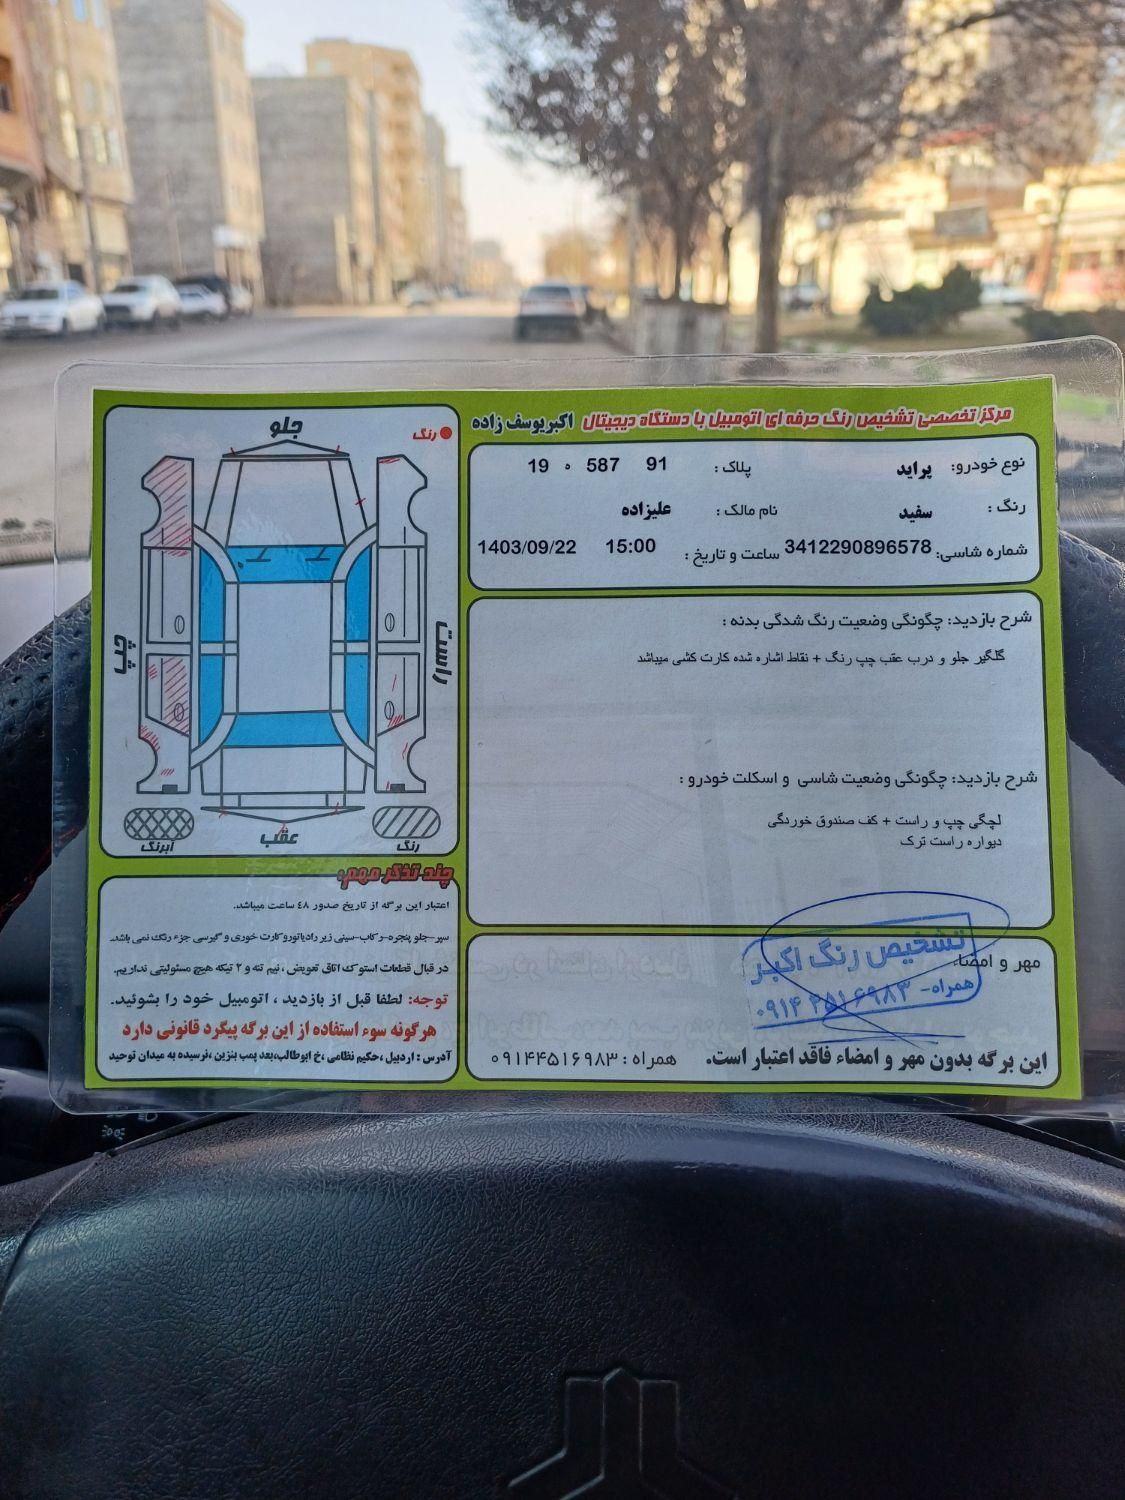 مرکز تخصصی تشخیص رنگ حرفه ای اتومبیل با دستگاه دیجیتال اکبریوسف زاده
نوع خودرو: پراید پلاک : 91 587 ه 19
رنگ : سفید نام مالک : علیزاده
شماره شاسی: 3412290896578 ساعت و تاریخ : 15:00 1403/09/22
شرح بازدید: چگونگی وضعیت رنگ شدگی بدنه :
گلگیر جلو و درب عقب چپ رنگ + نقاط اشاره شده کارت کشی میباشد
شرح بازدید: چگونگی وضعیت شاسی و اسکلت خودرو :
لچگی چپ و راست + کف صندوق خوردگی
دیواره راست ترک
مهر و امضا:
تشخیص رنگ اکبر
همراه- ۰۹۱۴۴۵۱۶۹۸۳
این برگه بدون مهر و امضاء فاقد اعتبار است. همراه : ۰۹۱۴۴۵۱۶۹۸۳
رنگ
جلو
راست
چپ
عقب
رنگ
آبرنگ
چند تذکر مهم:
اعتبار این برگه از تاریخ صدور ٤٨ ساعت میباشد.
سپر-جلو پنجره-رکاب-سینی زیر رادیاتوروکارت خوری و گیرسی جزء رنگ نمی باشد.
در قبال قطعات استوک اتاق تعویض ، نیم تنه و ۲ تیکه هیچ مسئولیتی نداریم.
توجه: لطفا قبل از بازدید ، اتومبیل خود را بشوئید.
هرگونه سوء استفاده از این برگه پیگرد قانونی دارد
آدرس : اردبیل ،حکیم نظامی ،خ ابوطالب،بعد پمپ بنزین ،نرسیده به میدان توحید